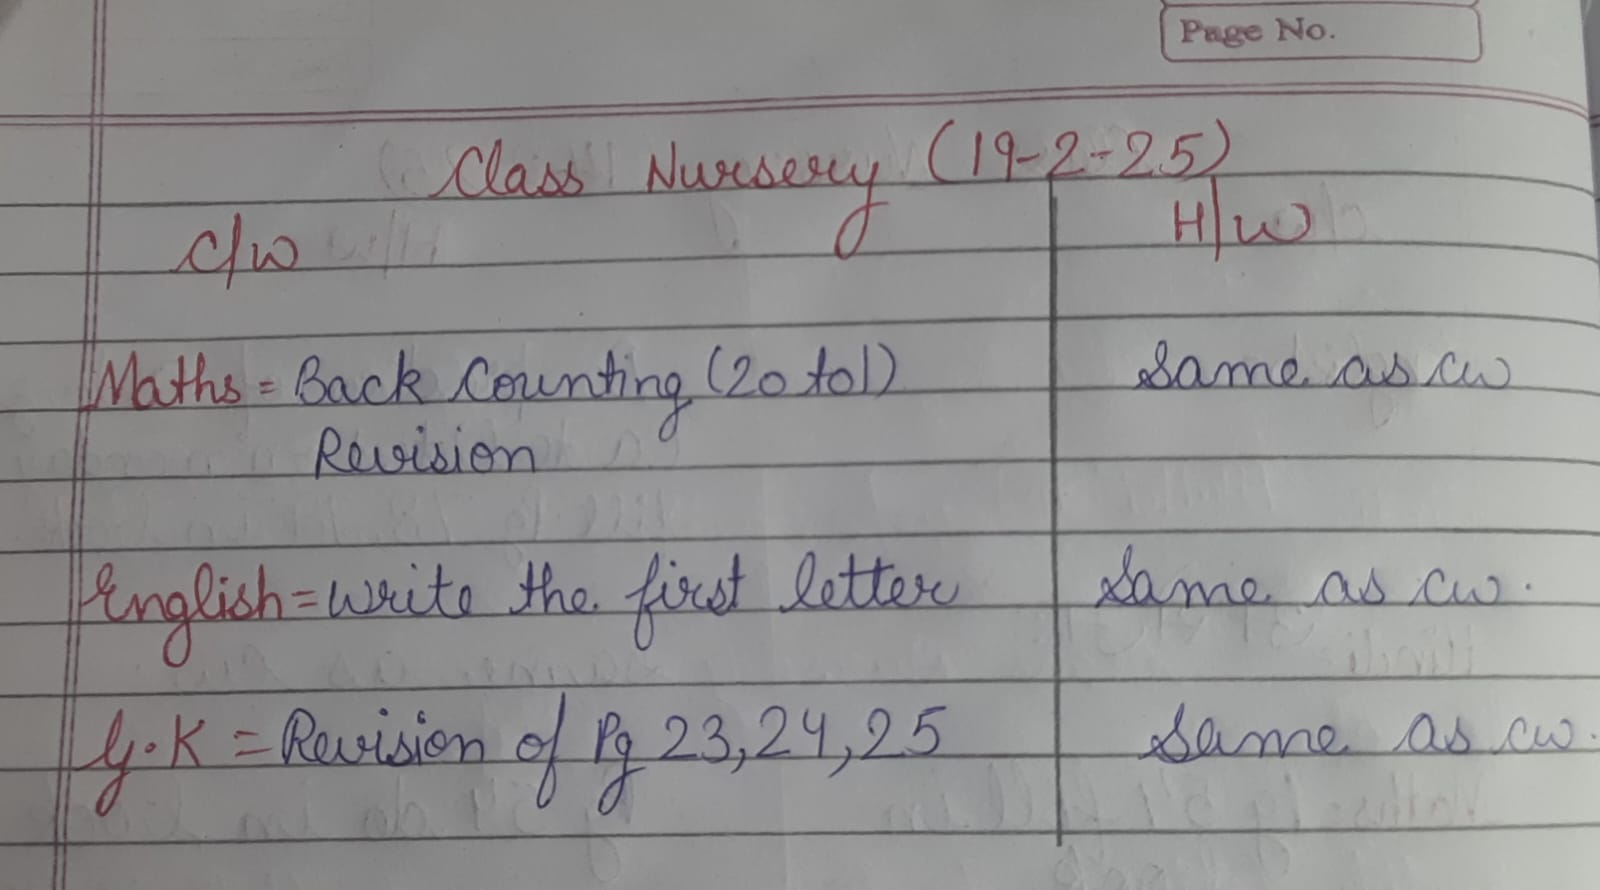 Page No.
Class Nursery (19-2-25)
C/w H/w
Maths = Back Counting (20 to 1) Same as cw
Revision
English = Write the first letter Same as cw.
G.K = Revision of Pg 23,24,25 Same as cw.